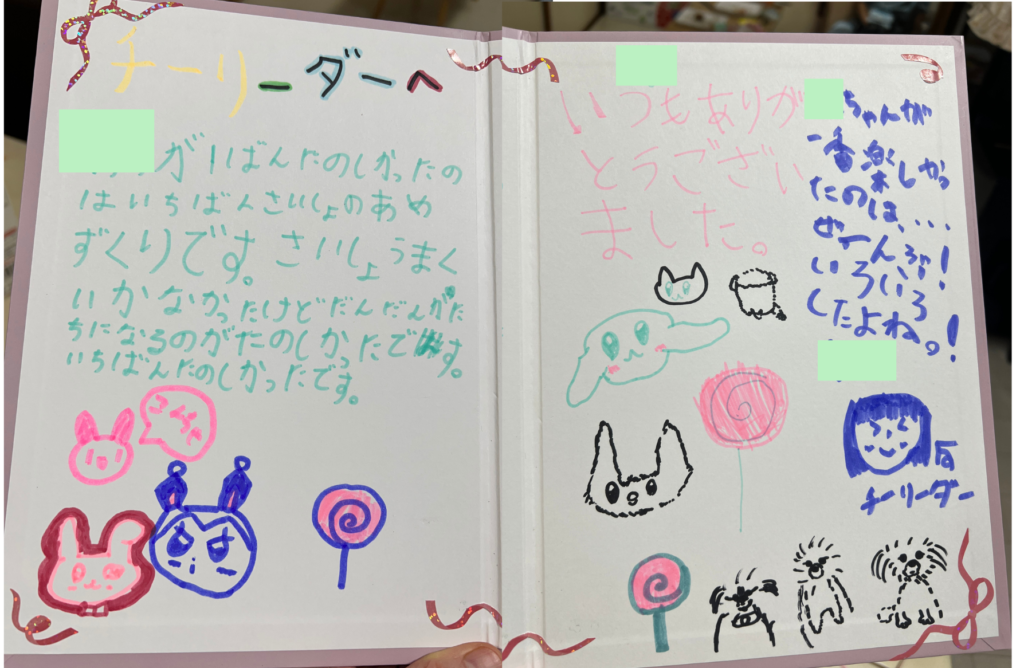 チーリーダーへ
がいばんたのしかったの
はいちばんさいしょのあめ
ずくりです。さいしょうまく
いかなかったけどだんだんがた
ちになるのがたのしかったです。
いちばんたのしかったです。
いつもありが
とうござい
ました。
ちゃんが
一番楽しかっ
たのは、...
ぜーんぶ!
いろいろ
したよね。!
チーリーダー